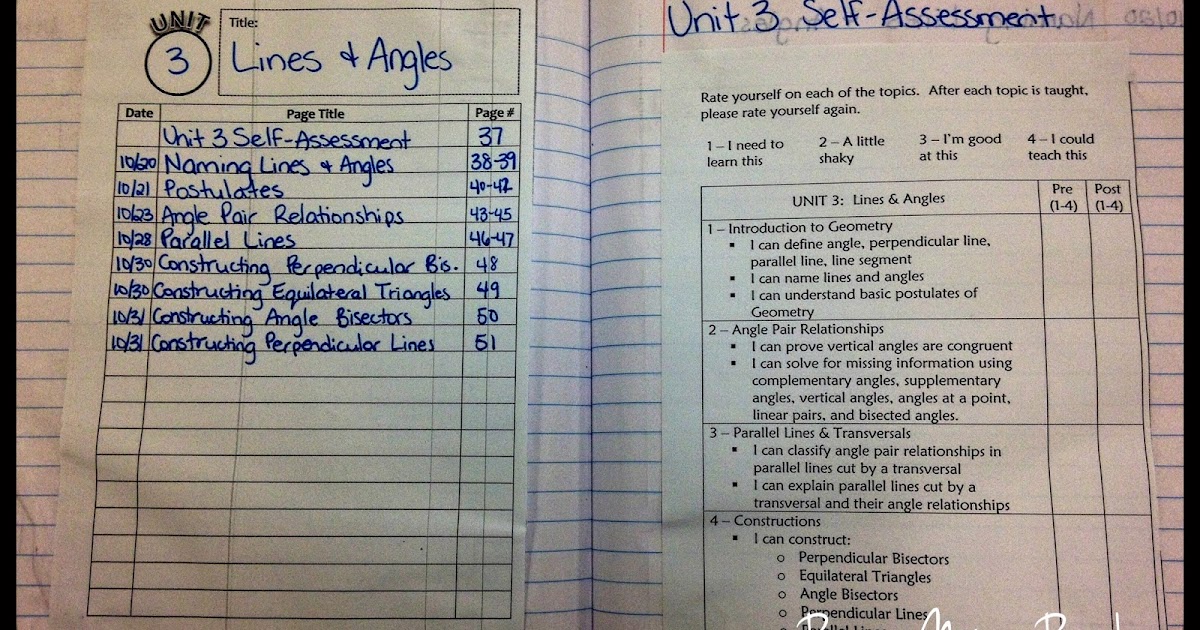 UNIT
3
Title:
Lines & Angles
Date Page Title Page #
Unit 3 Self-Assessment 37
10/20 Naming Lines & Angles 38-39
10/21 Postulates 40-42
10/23 Angle Pair Relationships 43-45
10/28 Parallel Lines 46-47
10/30 Constructing Perpendicular Bis. 48
10/30 Constructing Equilateral Triangles 49
10/31 Constructing Angle Bisectors 50
10/31 Constructing Perpendicular Lines 51
Unit 3 Self-Assessment
Rate yourself on each of the topics. After each topic is taught,
please rate yourself again.
1 – I need to learn this
2 – A little shaky
3 – I'm good at this
4 – I could teach this
UNIT 3: Lines & Angles Pre (1-4) Post (1-4)
1 – Introduction to Geometry
▪ I can define angle, perpendicular line,
parallel line, line segment
▪ I can name lines and angles
▪ I can understand basic postulates of
Geometry
2 – Angle Pair Relationships
▪ I can prove vertical angles are congruent
▪ I can solve for missing information using
complementary angles, supplementary
angles, vertical angles, angles at a point,
linear pairs, and bisected angles.
3 – Parallel Lines & Transversals
▪ I can classify angle pair relationships in
parallel lines cut by a transversal
▪ I can explain parallel lines cut by a
transversal and their angle relationships
4 – Constructions
▪ I can construct:
o Perpendicular Bisectors
o Equilateral Triangles
o Angle Bisectors
o Perpendicular Lines